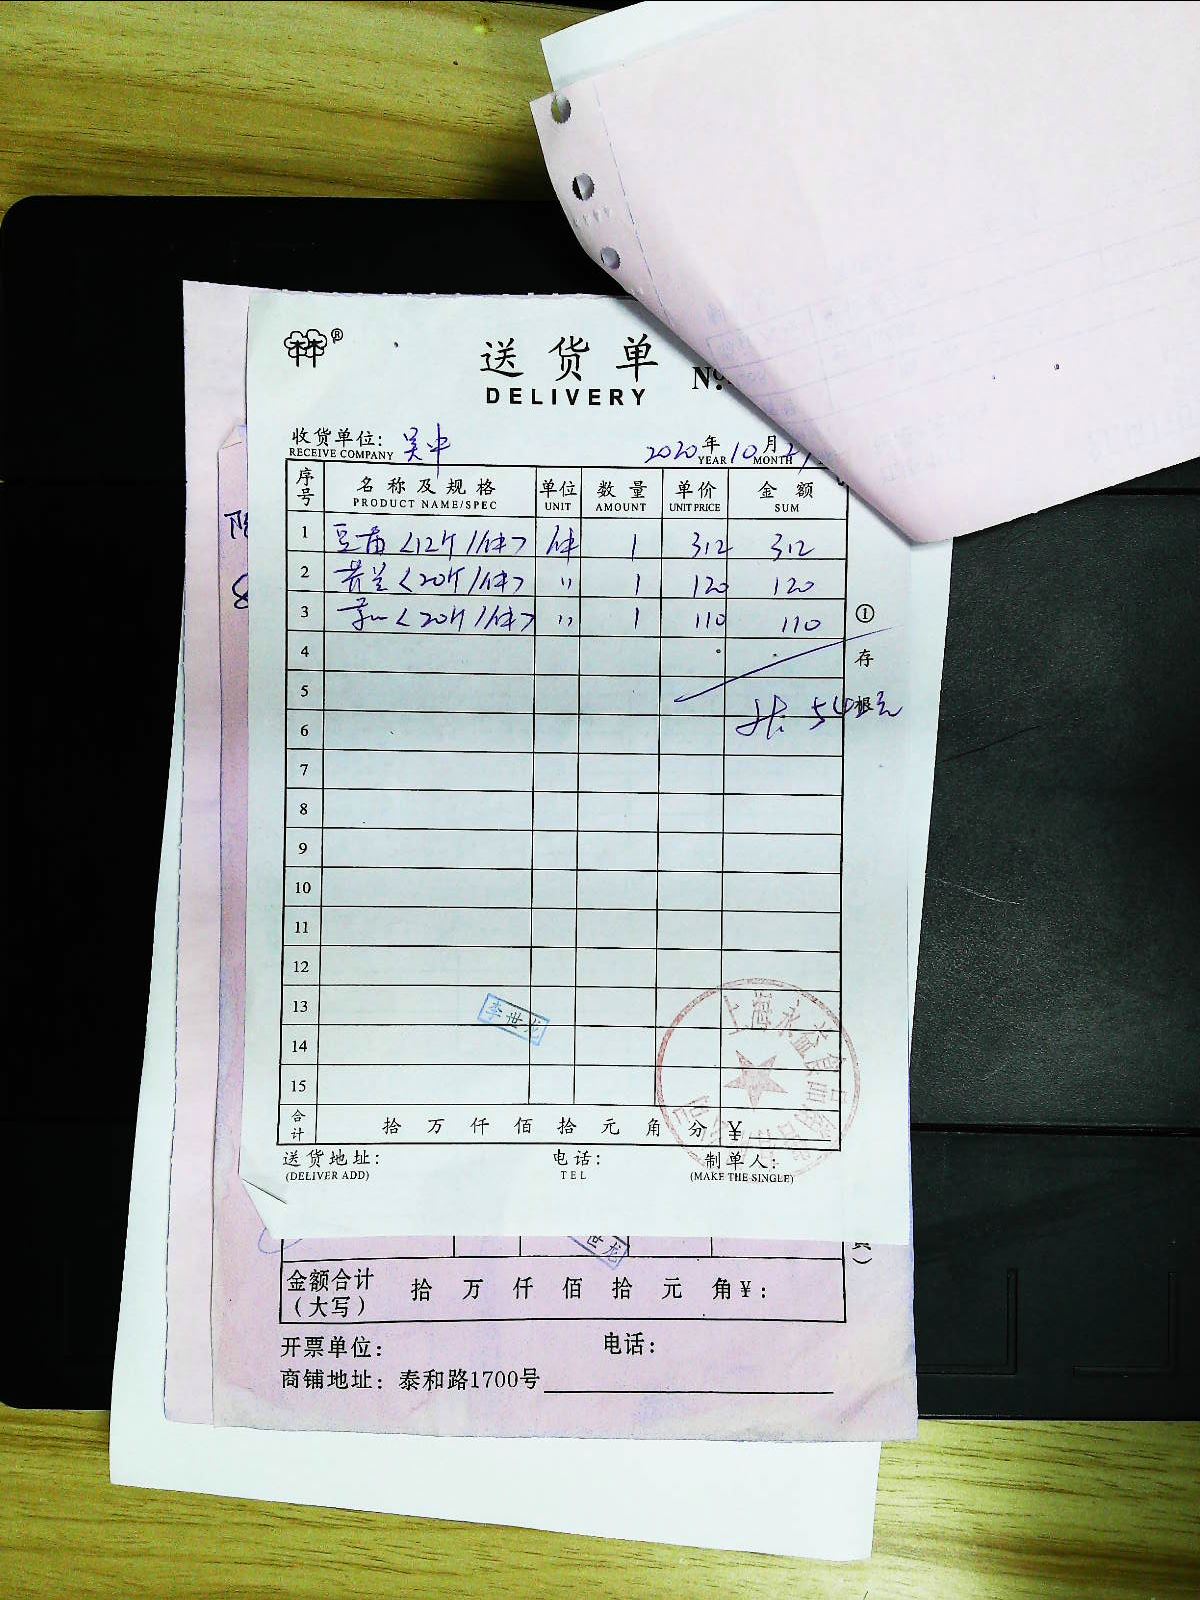 ®
送货单
DELIVERY
No
收货单位: 吴中
RECEIVE COMPANY
2020年10月2
YEAR MONTH
序号 名称及规格 单位 数量 单价 金额
PRODUCT NAME/SPEC UNIT AMOUNT UNIT PRICE SUM
1 <12个/件> 件 1 312 312
2 <20个/件> 〃 1 120 120
3 <20个/件> 〃 1 110 110
4
5
共: 542元
6
7
8
9
10
11
12
13
14
15
李世龙
上海永益食品
合计 拾 万 仟 佰 拾 元 角 分 ¥
送货地址: 电话: 制单人:
(DELIVER ADD) TEL (MAKE THE SINGLE)
①存根
世龙
金额合计
(大写) 拾 万 仟 佰 拾 元 角 ¥:
开票单位: 电话:
商铺地址: 泰和路1700号